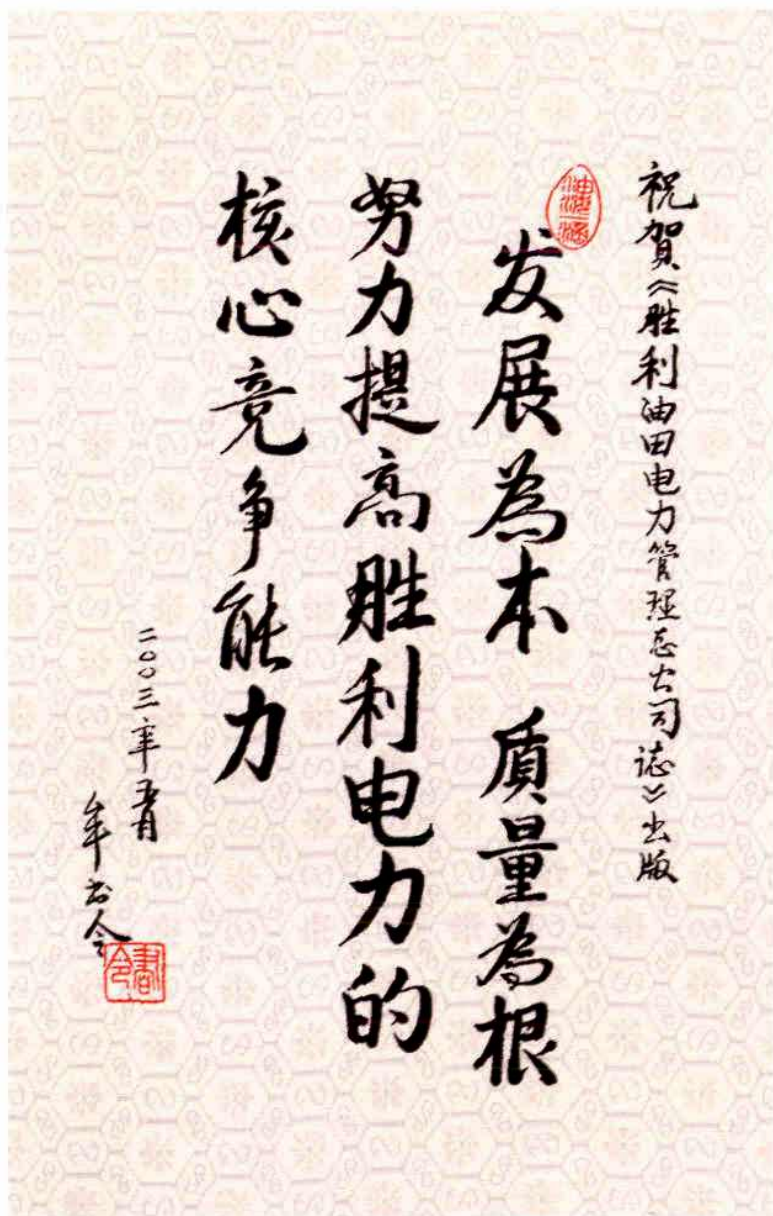 祝賀《胜利油田电力管理总公司誌》出版
发展為本 质量為根
努力提高胜利电力的
核心竞争能力
二〇〇三年五月
牟书令
書令